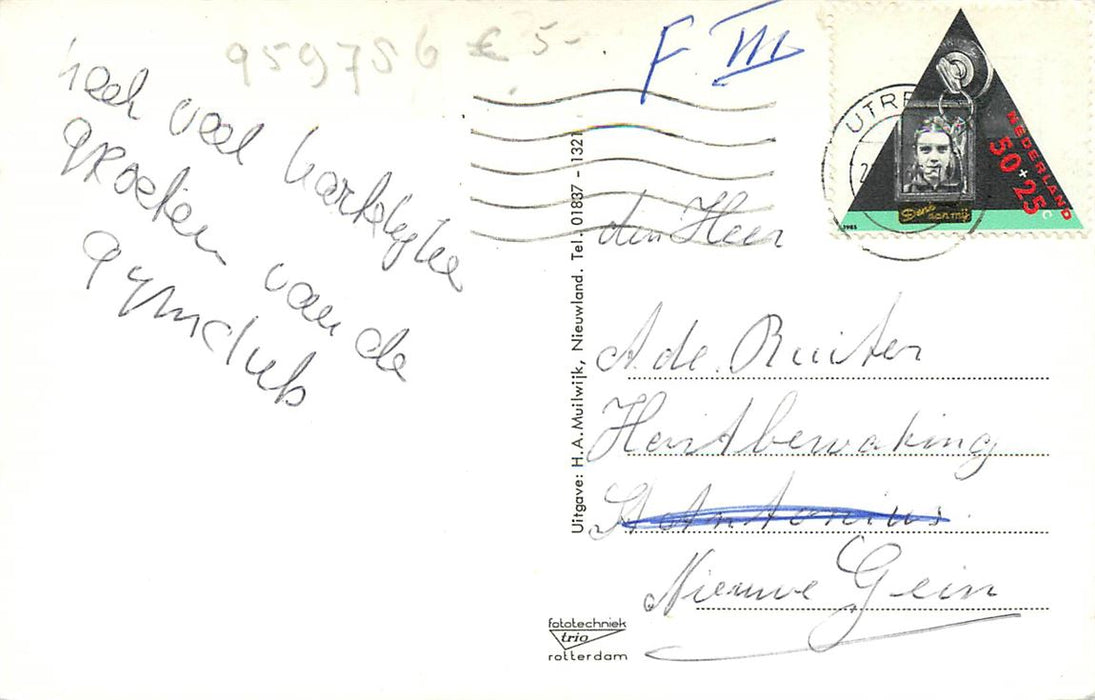 959756 € 5-.
F. III
heel veel hartelijke
groeten van de
gymclub
Uitgave: H.A. Muilwijk, Nieuwland. Tel. 01837 - 1321
UTRE
NEDERLAND
50+25
c
Denk aan mij
1985
den Heer
A. de Ruiter
Hertbewaking
St Antonius
Nieuwe Gein
fototechniek
trio
rotterdam